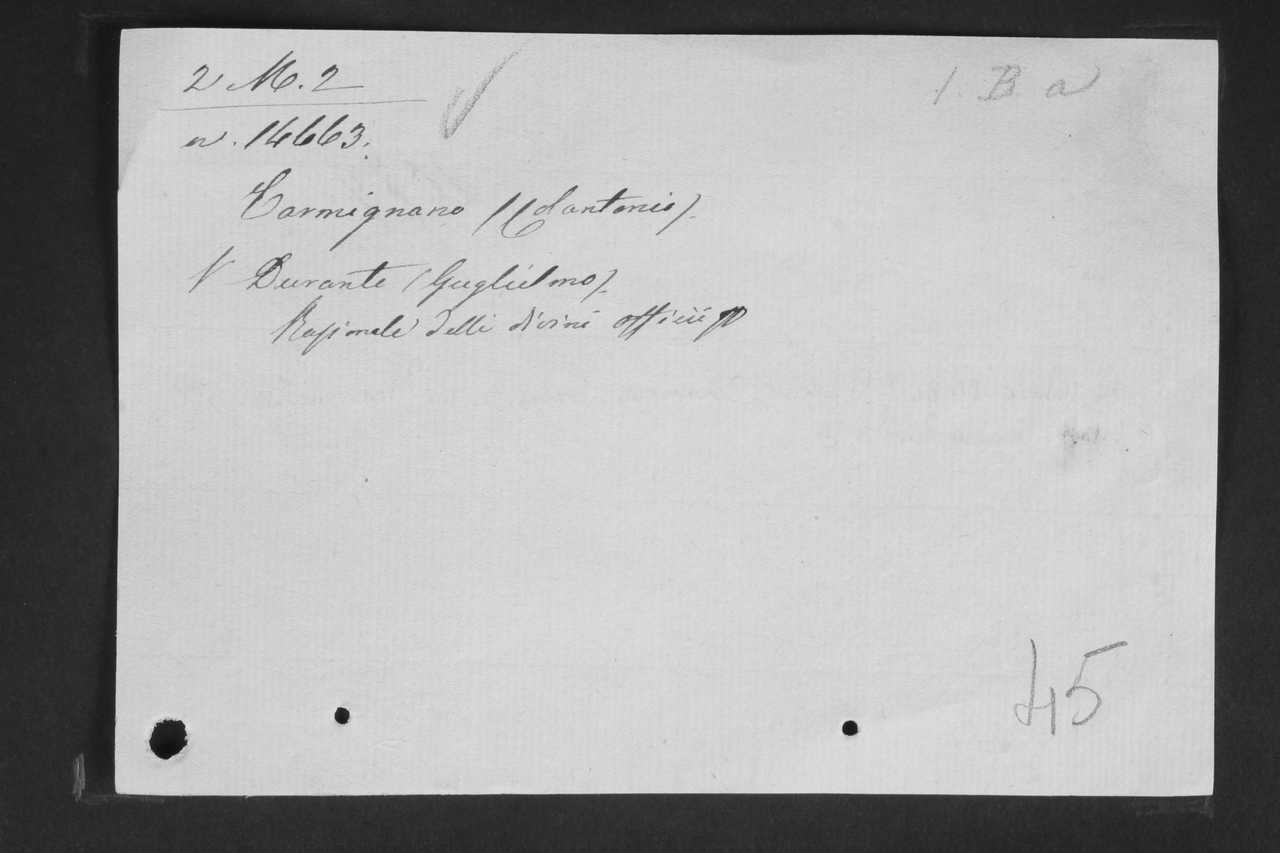 2 M. 2
1. B a
n. 14663.
Carmignano (Colantonio).
V Durante (Guglielmo).
Rasionale delli divini officii
45